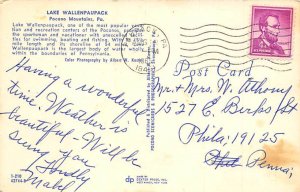 LAKE WALLENPAUPACK
Pocono Mountains, Pa.
Lake Wallenpaupack, one of the most popular
fish and recreation centers of the Poconos,
the sportsman and vacationer with unexcelled
ties for swimming, boating and fishing. With
mile length and its shoreline of 54 miles, Lake
Wallenpaupack is the largest body of water wholly
within the boundaries of Pennsylvania.
Color Photography by Albert W.
Having a wonderful
time. Weather is
beautiful. Will be
seeing you
Fondly
Mabel
Post Card
Mr & Mrs. W. Athony
1527 E. Berks St
Phila. 19125
Penna.
dp
DEXTER PRESS, INC.
WEST NYACK, NEW YORK